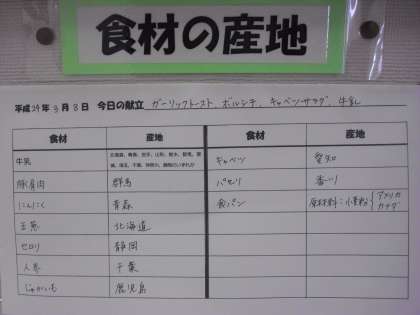 食材の産地
平成24年3月8日 今日の献立 ガーリックトースト、ボルシチ、キャベツサラダ、牛乳
食材 産地 食材 産地
牛乳 キャベツ 愛知
豚肩肉 群馬 パセリ 香川
にんにく 青森 食パン 原材料:小麦粉 アメリカ カナダ
玉葱 北海道
セロリ 静岡
人参 千葉
じゃがいも 鹿児島